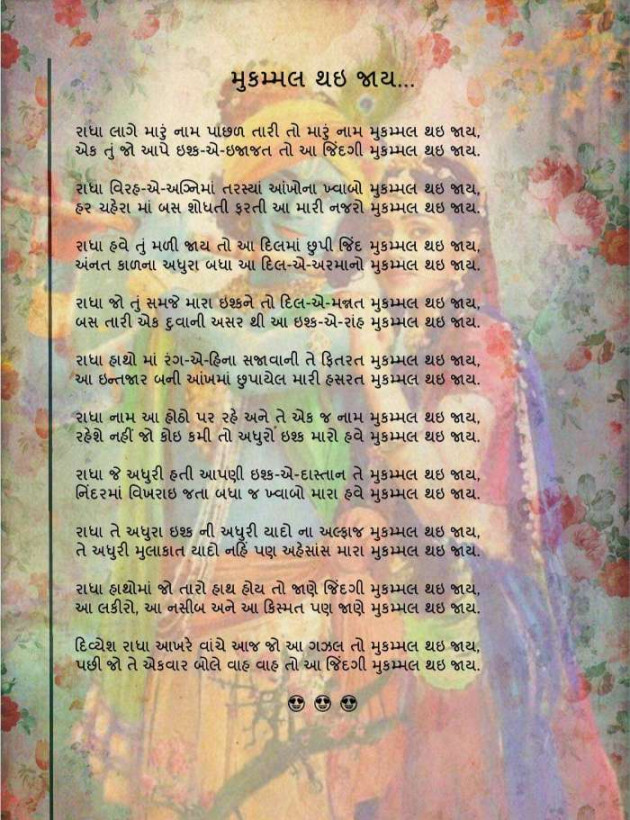 મુકમ્મલ થઇ જાય...
રાધા લાગે મારું નામ પાછળ તારી તો મારું નામ મુકમ્મલ થઇ જાય,
એક તું જો આપે ઇશ્ક-એ-ઇજાજત તો આ જિંદગી મુકમ્મલ થઇ જાય.
રાધા વિરહ-એ-અગ્નિમાં તરસ્યાં આંખોના ખ્વાબો મુકમ્મલ થઇ જાય,
હર ચહેરા માં બસ શોધતી ફરતી આ મારી નજરો મુકમ્મલ થઇ જાય.
રાધા હવે તું મળી જાય તો આ દિલમાં છુપી જિંદ મુકમ્મલ થઇ જાય,
અંનત કાળના અધુરા બધા આ દિલ-એ-અરમાનો મુકમ્મલ થઇ જાય.
રાધા જો તું સમજે મારા ઇશ્કને તો દિલ-એ-મન્નત મુકમ્મલ થઇ જાય,
બસ તારી એક દુવાની અસર થી આ ઇશ્ક-એ-રાંહ મુકમ્મલ થઇ જાય.
રાધા હાથો માં રંગ-એ-હિના સજાવાની તે ફિતરત મુકમ્મલ થઇ જાય,
આ ઇન્તજાર બની આંખમાં છુપાયેલ મારી હસરત મુકમ્મલ થઇ જાય.
રાધા નામ આ હોઠો પર રહે અને તે એક જ નામ મુકમ્મલ થઇ જાય,
રહેશે નહીં જો કોઇ કમી તો અધુરો ઇશ્ક મારો હવે મુકમ્મલ થઇ જાય.
રાધા જે અધુરી હતી આપણી ઇશ્ક-એ-દાસ્તાન તે મુકમ્મલ થઇ જાય,
નિંદરમાં વિખરાઇ જતા બધા જ ખ્વાબો મારા હવે મુકમ્મલ થઇ જાય.
રાધા તે અધુરા ઇશ્ક ની અધુરી યાદો ના અલ્ફાજ મુકમ્મલ થઇ જાય,
તે અધુરી મુલાકાત યાદો નહિં પણ અહેસાંસ મારા મુકમ્મલ થઇ જાય.
રાધા હાથોમાં જો તારો હાથ હોય તો જાણે જિંદગી મુકમ્મલ થઇ જાય,
આ લકીરો, આ નસીબ અને આ કિસ્મત પણ જાણે મુકમ્મલ થઇ જાય.
દિવ્યેશ રાધા આખરે વાંચે આજ જો આ ગઝલ તો મુકમ્મલ થઇ જાય,
પછી જો તે એકવાર બોલે વાહ વાહ તો આ જિંદગી મુકમ્મલ થઇ જાય.
😍 😍 😍